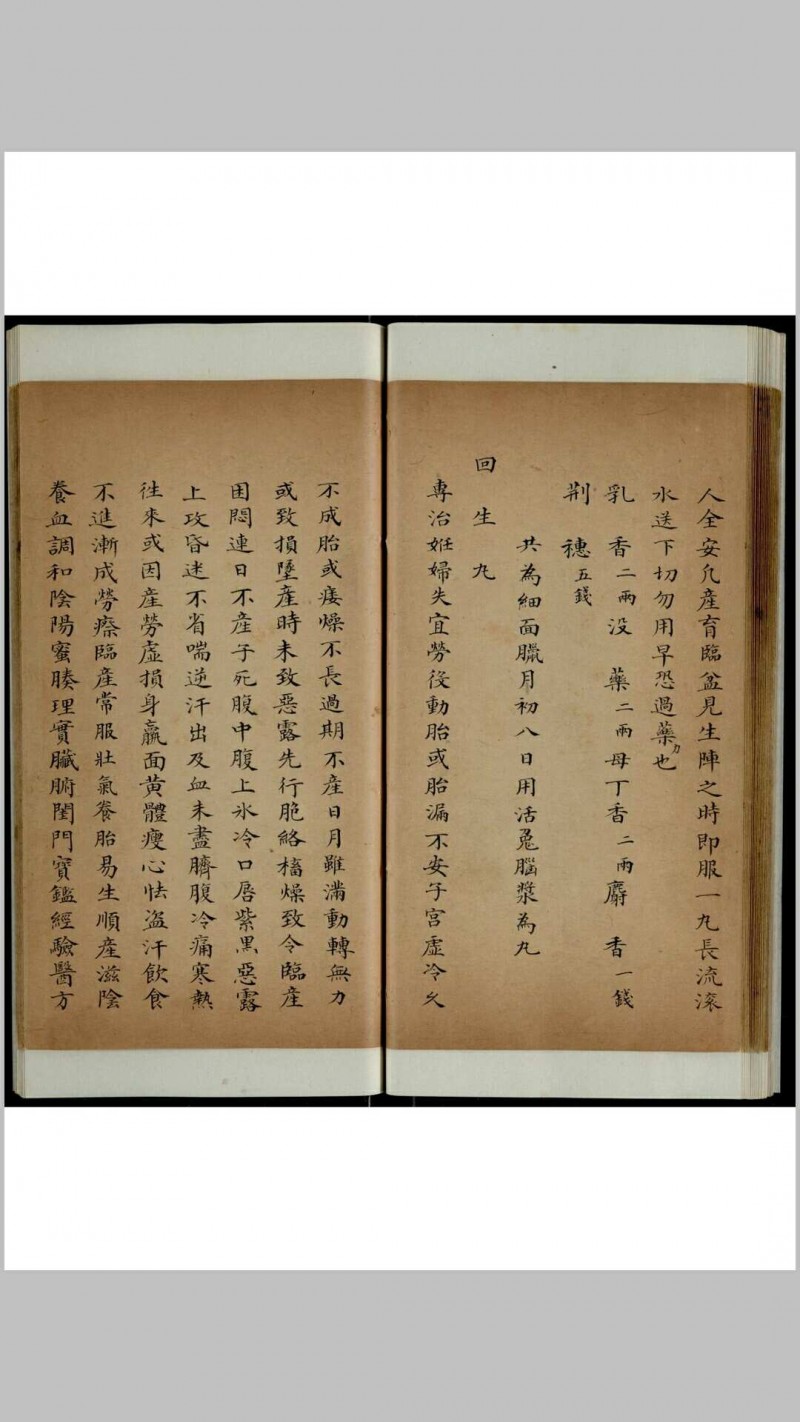 人全安凡產育臨盆見生陣之時即服一丸長流滚
水送下切勿用早恐過藥力也
乳香二兩没藥二兩母丁香二兩麝香一錢
荆穗五錢
共為細面臘月初八日用活兔腦漿為丸
回生丸
專治姙婦失宜勞役動胎或胎漏不安子宮虛冷久
不成胎或痿燥不長過期不產日月雖滿動轉無力
或致損墜產時未致惡露先行胞絡枯燥致令臨產
困悶連日不產子死腹中腹上氷冷口唇紫黑惡露
上攻昏迷不省喘逆汗出及血未盡臍腹冷痛寒熱
徃來或因產勞虛損身羸面黃體瘦心怯盗汗飲食
不進漸成勞瘵臨產常服壯氣養胎易生順產滋陰
養血調和陰陽蜜腠理實臟腑閨門寳鑑經驗醫方